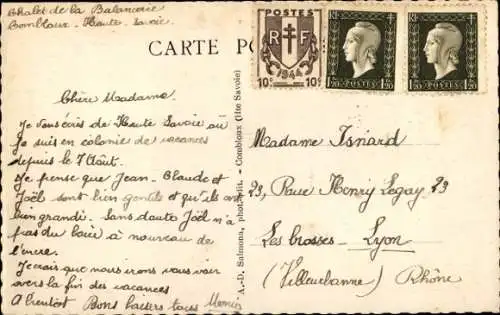 Chalet de la Balancerie
Combloux - Haute-Savoie
CARTE PO
POSTES
RF
1944
10c 10c
RF
1f20 POSTES 1f20
RF
1f20 POSTES 1f20
Chère Madame.
Je vous écris de Haute Savoie où
je suis en colonie de vacances
depuis le 7 Août.
Je pense que Jean-Claude et
Joël sont bien gentils et qu'ils ont
bien grandi. Sans doute Joël n'a
pas du boire à nouveau de
l'encre.
Je crois que nous irons vous voir
vers la fin des vacances
A bientôt Bons baisers tous
A.-D. Salmona, phot.-édit. - Combloux (Hte Savoie)
Madame Isnard
23, Rue Henry Legay 23
Les brosses - Lyon
(Villeurbanne) Rhône